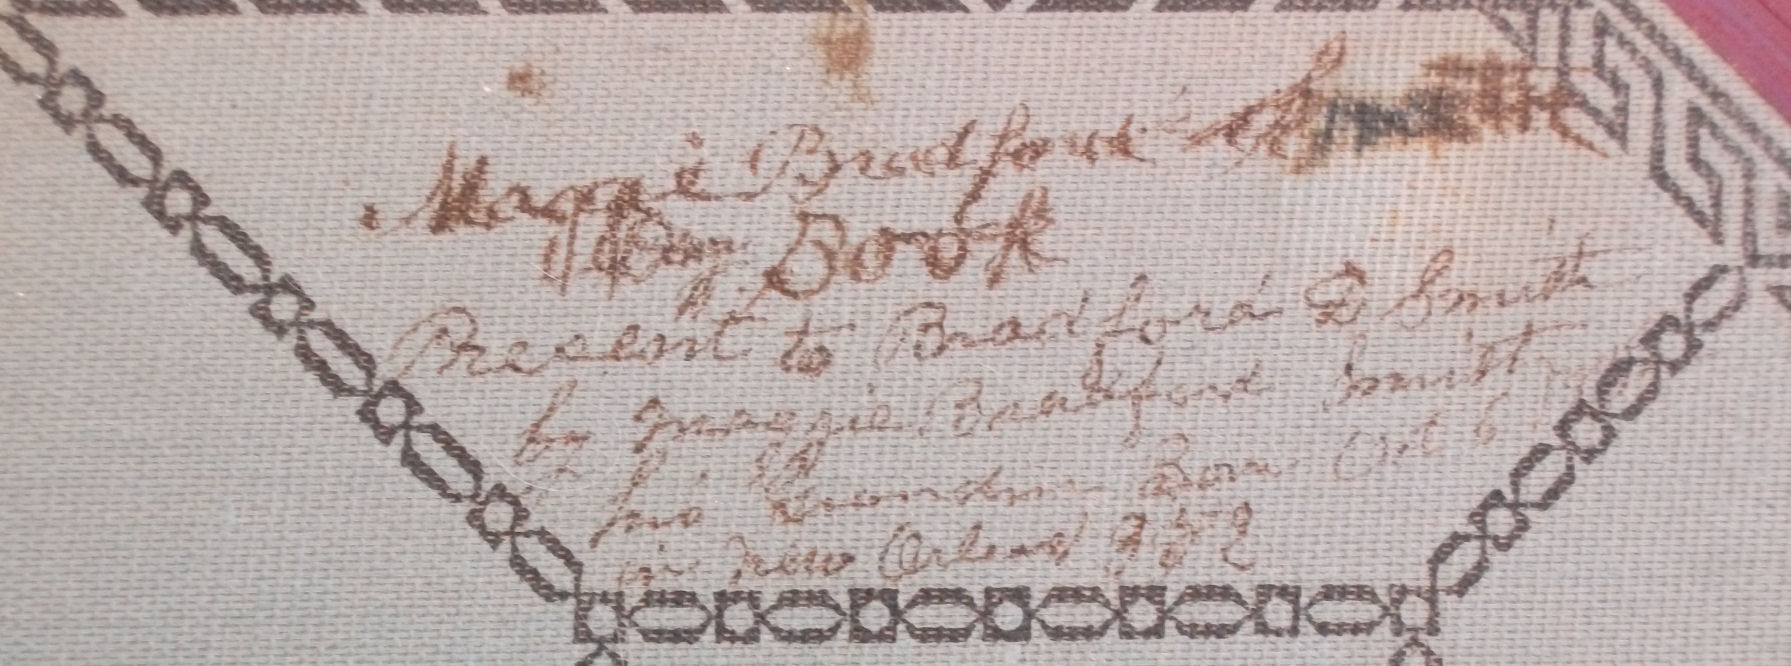 Maggie Bradford Smith
Book
Present to Bradford D Smith
by maggie Bradford Smith
his Grandma Born Oct 6
in New Orleans